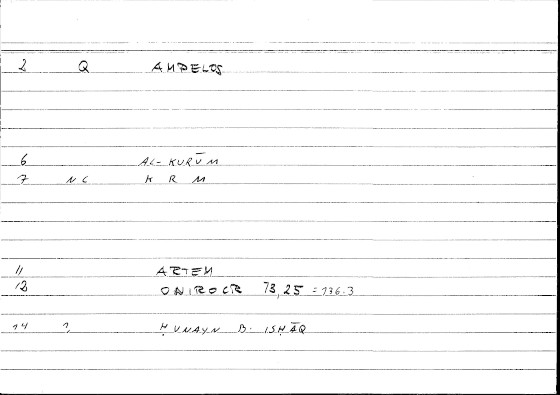 2 Q AMPELOS
6 AL-KURŪM
7 NC K R M
11 ARTEM
12 ONIROCR 73,25 = 136.3
14 1, ḤUNAYN B. ISḤĀQ